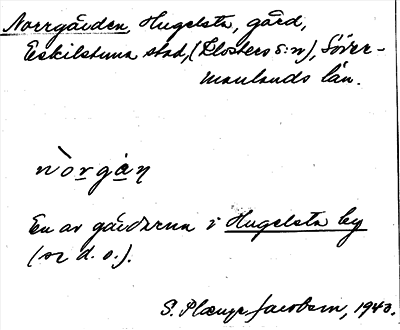 Norrgården, Hugelsta, gård,
Eskilstuna stad, (Klosters s:n), Söder-
manlands län.
nòrgàn
En av gårdarna i Hugelsta by
(se d. o.).
S. Plænge Jacobson, 1940.